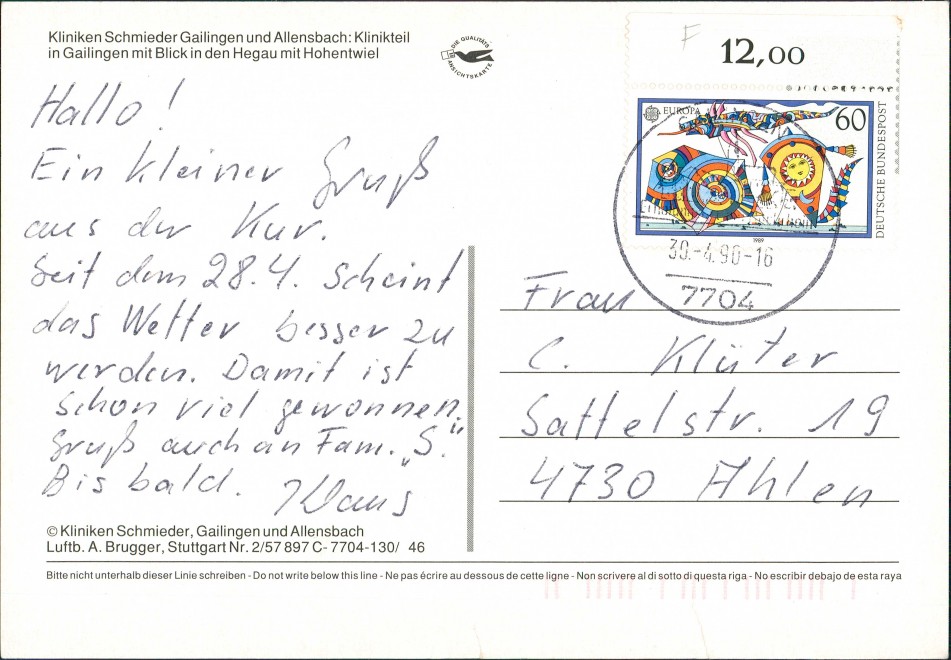 Kliniken Schmieder Gailingen und Allensbach: Klinikteil
in Gailingen mit Blick in den Hegau mit Hohentwiel
DIE QUALITÄTS
ANSICHTSKARTE
F
12,00
EUROPA
60
DEUTSCHE BUNDESPOST
1989
30.-4.90-16
7704
Hallo!
Ein kleiner Gruß
aus der Kur.
Seit dem 28.4. scheint
das Wetter besser zu
werden. Damit ist
schon viel gewonnen.
Gruß auch an Fam. „S."
Bis bald. Klaus
Frau
C. Klüter
Sattelstr. 19
4730 Ahlen
© Kliniken Schmieder, Gailingen und Allensbach
Luftb. A. Brugger, Stuttgart Nr. 2/57 897 C- 7704-130/ 46
Bitte nicht unterhalb dieser Linie schreiben - Do not write below this line - Ne pas écrire au dessous de cette ligne - Non scrivere al di sotto di questa riga - No escribir debajo de esta raya